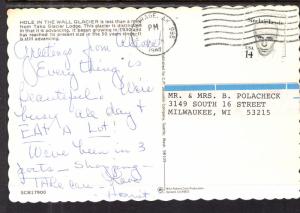 HOLE IN THE WALL GLACIER is less than a
from Taku Glacier Lodge. This glacier is
in that it is advancing. It began growing in 1930 and
has reached its present size in the 50 years since. It
is still advancing.
PM
Sinclair Lewis
USA
14
Greetings from Alaska
Everything is
beautiful! We're
busy all day &
EAT A LOT!
We've been in 3
ports - shopping -
Take care - Love
MR. & MRS. B. POLACHECK
3149 SOUTH 16 STREET
MILWAUKEE, WI 53215
SCB17900